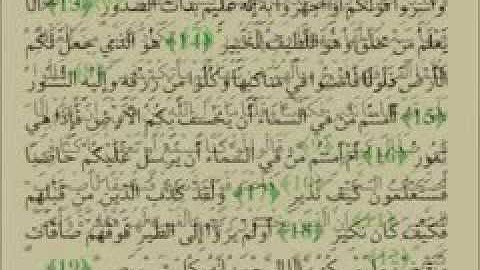 وأسروا قولكم أو اجهروا به إنه عليم بذات الصدور ﴿13﴾ ألا
يعلم من خلق وهو اللطيف الخبير ﴿14﴾ هو الذي جعل لكم
الأرض ذلولا فامشوا في مناكبها وكلوا من رزقه وإليه النشور
﴿15﴾ أأمنتم من في السماء أن يخسف بكم الأرض فإذا هي
تمور ﴿16﴾ أم أمنتم من في السماء أن يرسل عليكم حاصبا
فستعلمون كيف نذير ﴿17﴾ ولقد كذب الذين من قبلهم
فكيف كان نكير ﴿18﴾ أولم يروا إلى الطير فوقهم صافات
إلا الرحمن إنه بكل ﴿19﴾